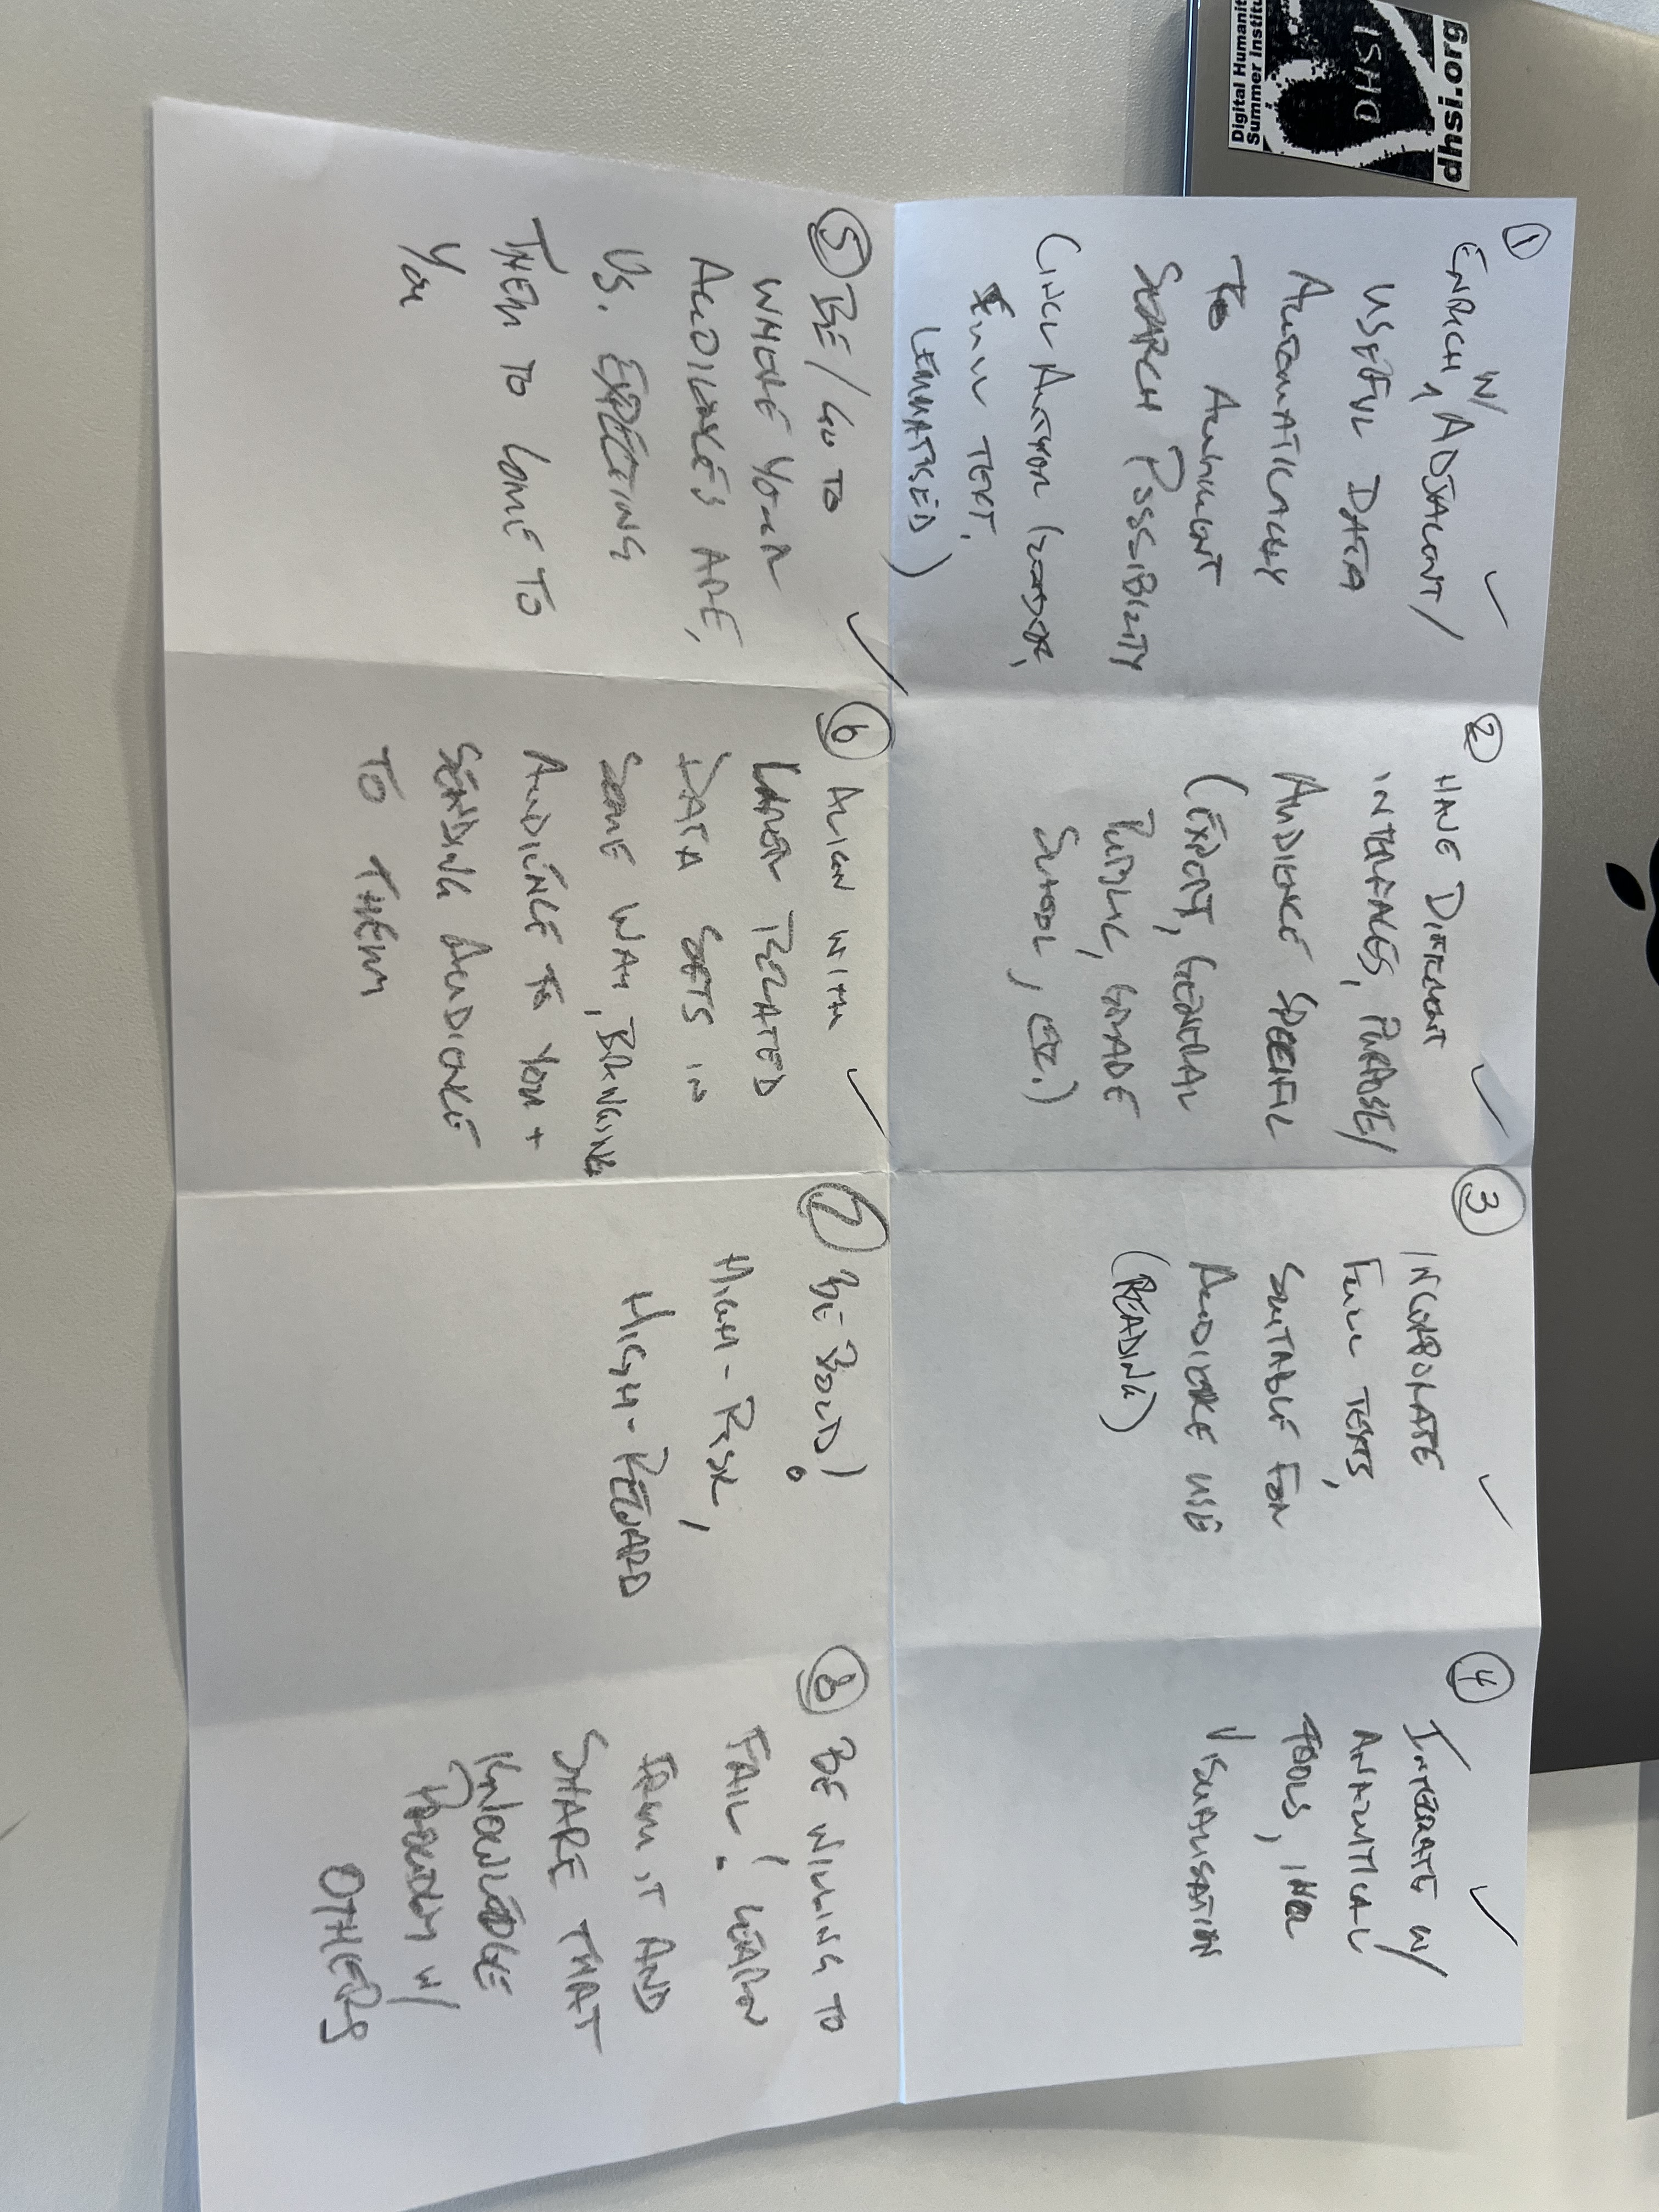 Digital Humanit
Summer Institu
DHSI
dhsi.org
①
ENRICH W/ ADJACENT/
USEFUL DATA
AUTOMATICALLY
TO AUGMENT
SEARCH POSSIBILITY
(INCL AUTHOR
FULL TEXT,
LEMMATISED)
✓
②
HAVE DIFFERENT
INTERFACES, PURPOSE/
AUDIENCE SPECIFIC
(EXPERT, GENERAL
PUBLIC, GRADE
SCHOOL, ETC.)
✓
③
INCORPORATE
FULL TEXTS,
SUITABLE FOR
AUDIENCE USE
(READING)
✓
④
INTEGRATE W/
ANALYTICAL
TOOLS, INCL
VISUALISATION
✓
⑤ BE/GO TO
WHERE YOUR
AUDIENCES ARE,
VS. EXPECTING
THEM TO COME TO
YOU
✓
⑥ ALIGN WITH
LARGER RELATED
DATA SETS IN
SOME WAY, BRINGING
AUDIENCE TO YOU +
SENDING AUDIENCE
TO THEM
✓
⑦ BE BOLD!
HIGH-RISK,
HIGH-REWARD
⑧ BE WILLING TO
FAIL! LEARN
FROM IT AND
SHARE THAT
KNOWLEDGE
W/
OTHERS